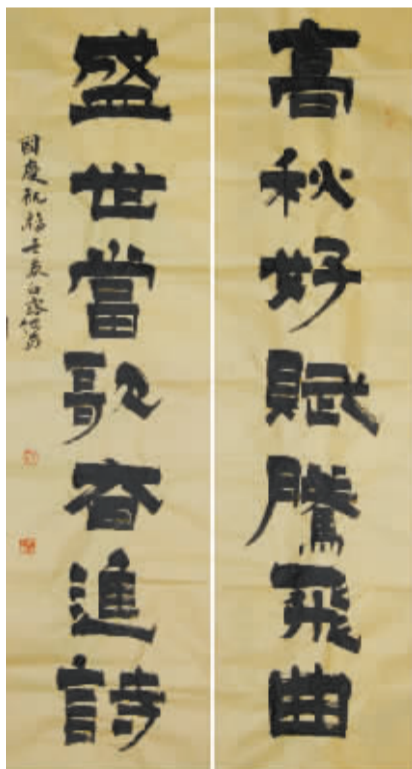 高秋好賦騰飛曲
盛世當歌奮進詩
國慶祝福壬辰白露